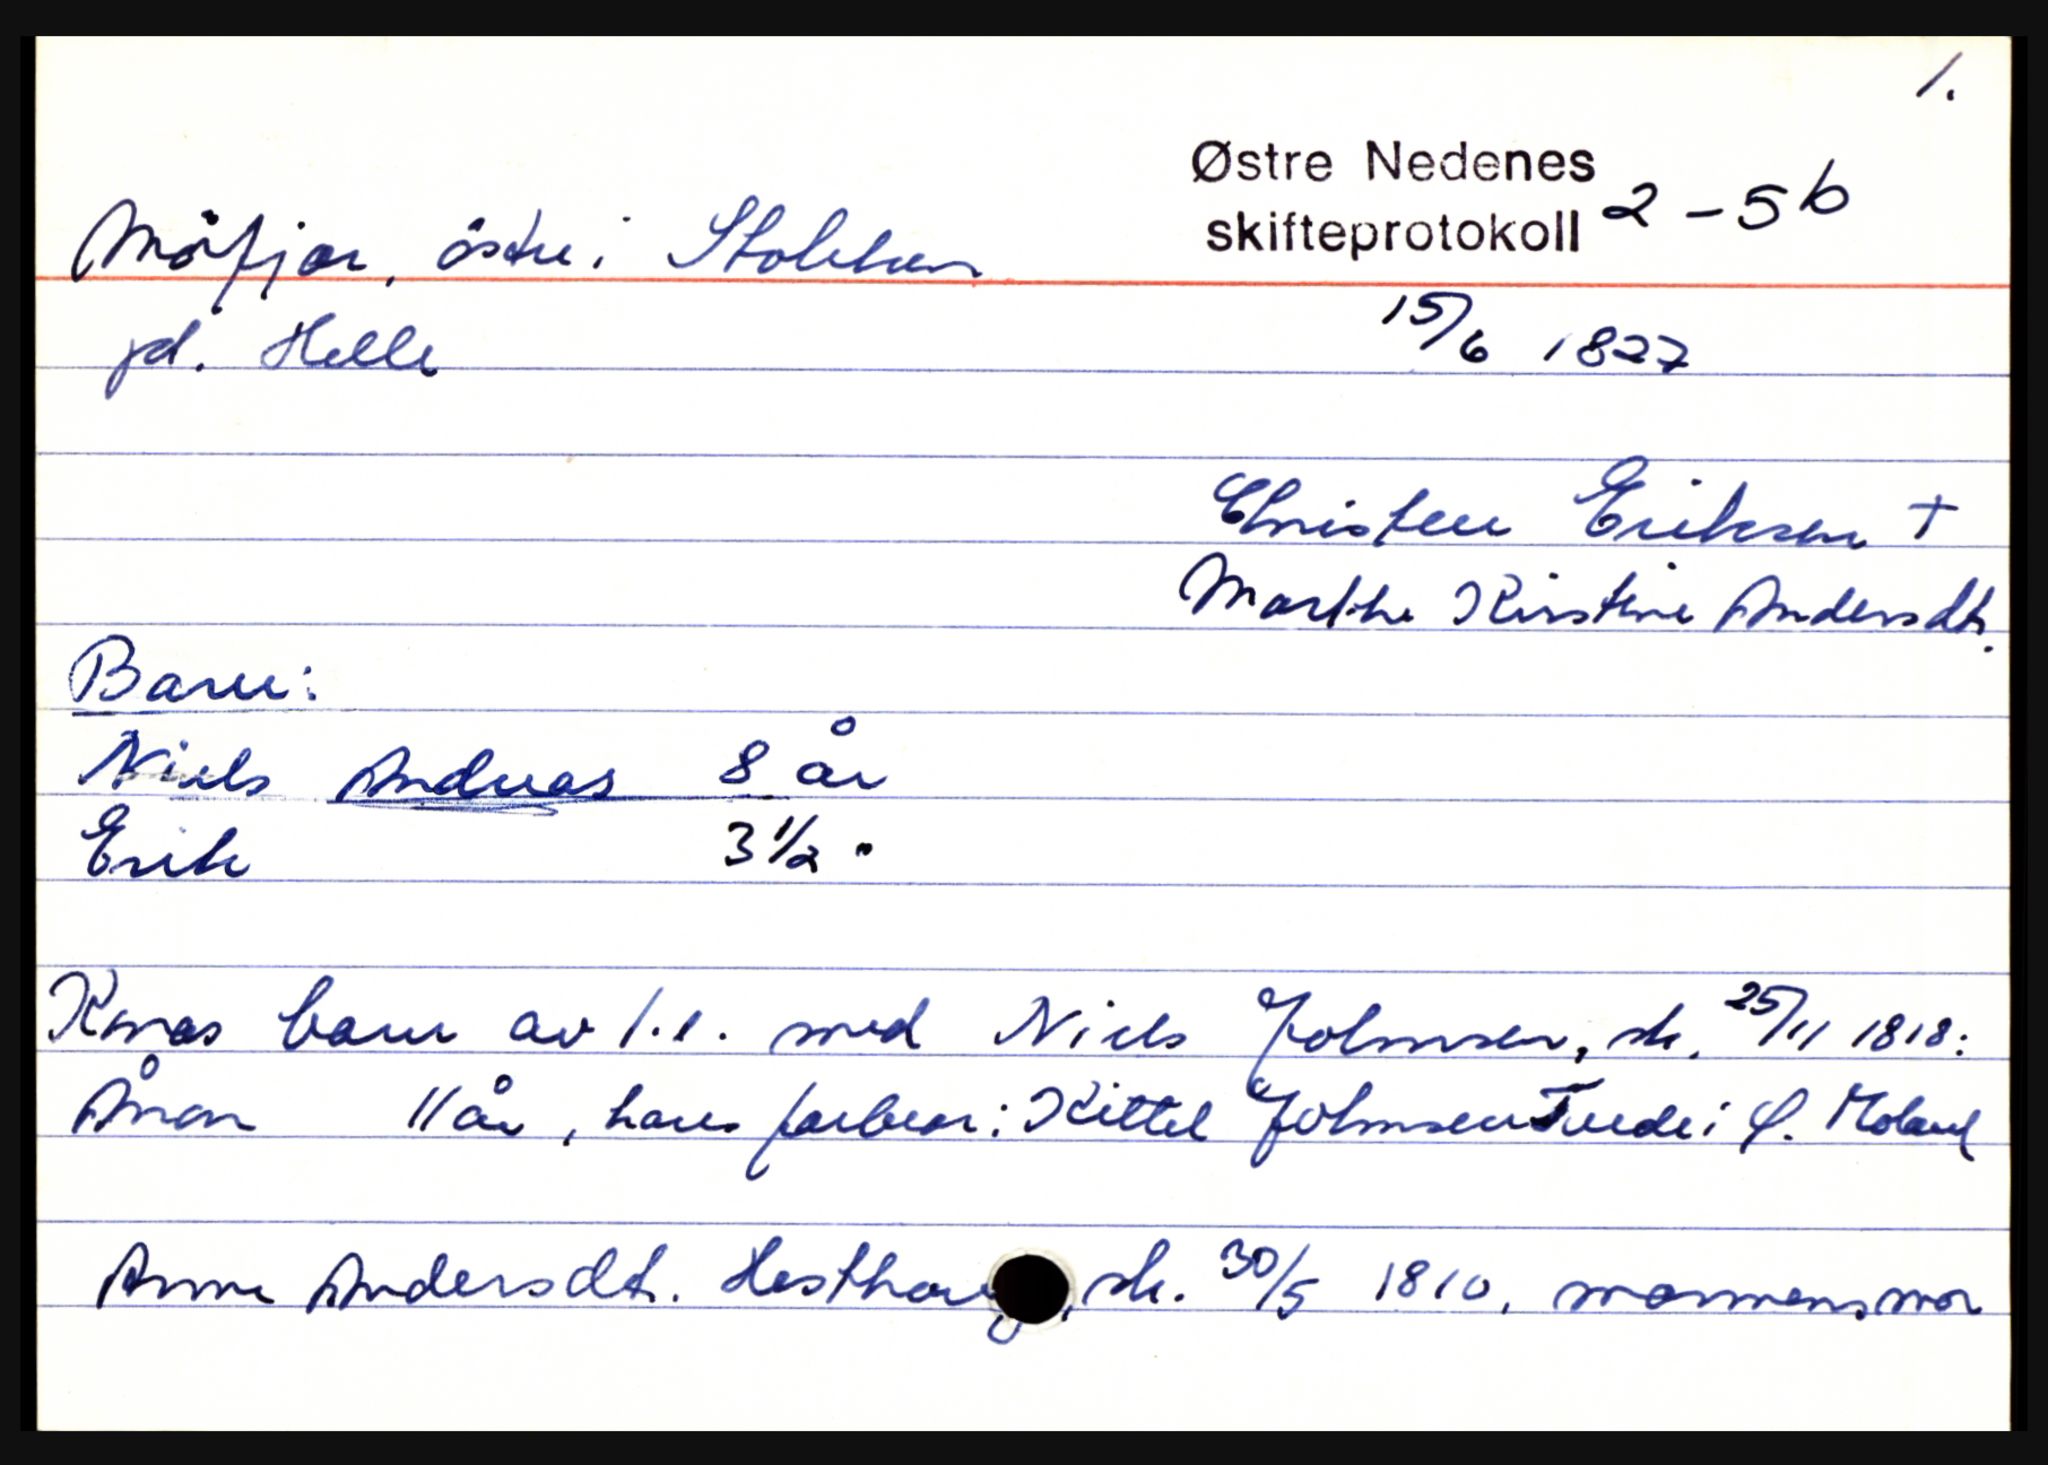 1.
Østre Nedenes
skifteprotokoll 2-5b
Möfjær, östre i Stokken
pd. Helle
15/6 1827
Christen Eriksen +
Marthe Kirstine Andersdt.
Barn:
Niels Andreas 8 år
Erik 3 1/2 "
Kones barn av 1.e. med Niels Johnsen, sk. 25/11 1818:
Ånon 11 år, hans farbror: Kittel Johnsen Tvede i Ö. Moland
Anne Andersdt. Hesthag, sk. 30/5 1810, mannens mor